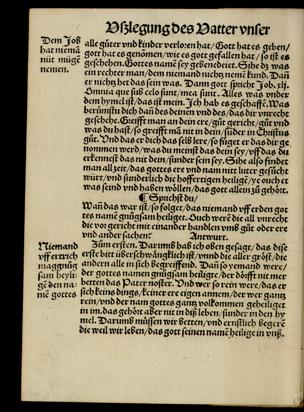 Vßlegung des Vatter vnser
Dem Job
hat niemā
nüt müge
nemen.
alle güter vnd kinder verloren hat / Gott hat es geben /
gott hat es genōmen / wie es gott gefallen hat / so ist es
geschehen. Gottes namē sey gebenedeiet. Sihe dz was
ein rechter man / dem niemand nichtz nemē kund. Dañ
er nichtz het das sein was. Dann gott spricht Job. xlj.
Omnia que sub celo sunt / mea sunt. Alles was vnder
dem hymel ist / das ist mein. Ich hab es geschaffē. Was
berümstu dich dañ des deinen vnd des / das dir vnrecht
geschehe. Greifft man an dein ere / gůt gerücht / gůt vnd
was du hast / so greifft mā nit in dein / sunder in Christus
gůt. Vnd das er dich das selb lere / so füget er das dir ge
nommen werd / was du meinst das dein sey / vff das du
erkennest das nit dein / sunder sein sey. Sihe also findet
man all zeit / das gottes ere vnd nam nit luter gesůcht
würt / vnd sunderlich die hoffertigen heiligē / ye ouch et
was seind vnd haben wöllen / das gott allein zů gehört.
¶ Sprichstu /
Wañ das war ist / so folget / das niemand vff erden got
tes namē gnůgsam heiliget. Ouch werē die all vnrecht
die vor gericht mit einander handlen vmb gůt oder ere
vnd ander sachen. Antwurt.
Niemand
vff ertrich
mag gnůg
sam heyli
gē den na-
mē gottes
Zům ersten. Darumb hab ich oben gesagt / das dise
erste bitt überschwäncklich ist / vnnd die aller gröst / die
andern alle in sich begreiffend. Dañ so yemand were /
der gottes namen gnůgsam heiligte / der dörfft nit mer
betten das Pater noster. Vnd wer so rein were / das er
sich keins dings / keiner ere eigen annem / der wer gantz
rein / vnd der nam gottes gantz volkommen geheiliget
in im. das gehört aber nit in diß leben / sunder in den hy
mel. Darumb müssen wir betten / vnd ernstlich begerē
die weil wir leben / das gott seinen namē heilige in vnß.